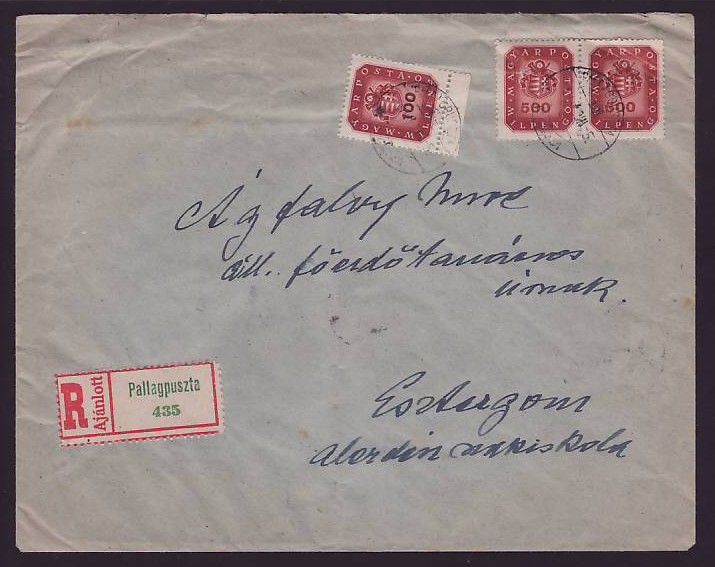 MAGYAR POSTA
100
MILPENGŐ
MAGYAR POSTA
500
MILPENGŐ
MAGYAR POSTA
500
MILPENGŐ
Ágfalvy Imre
áll. főerdőtanácsos
úrnak
R
Ajánlott
Pallagpuszta
435
Esztergom